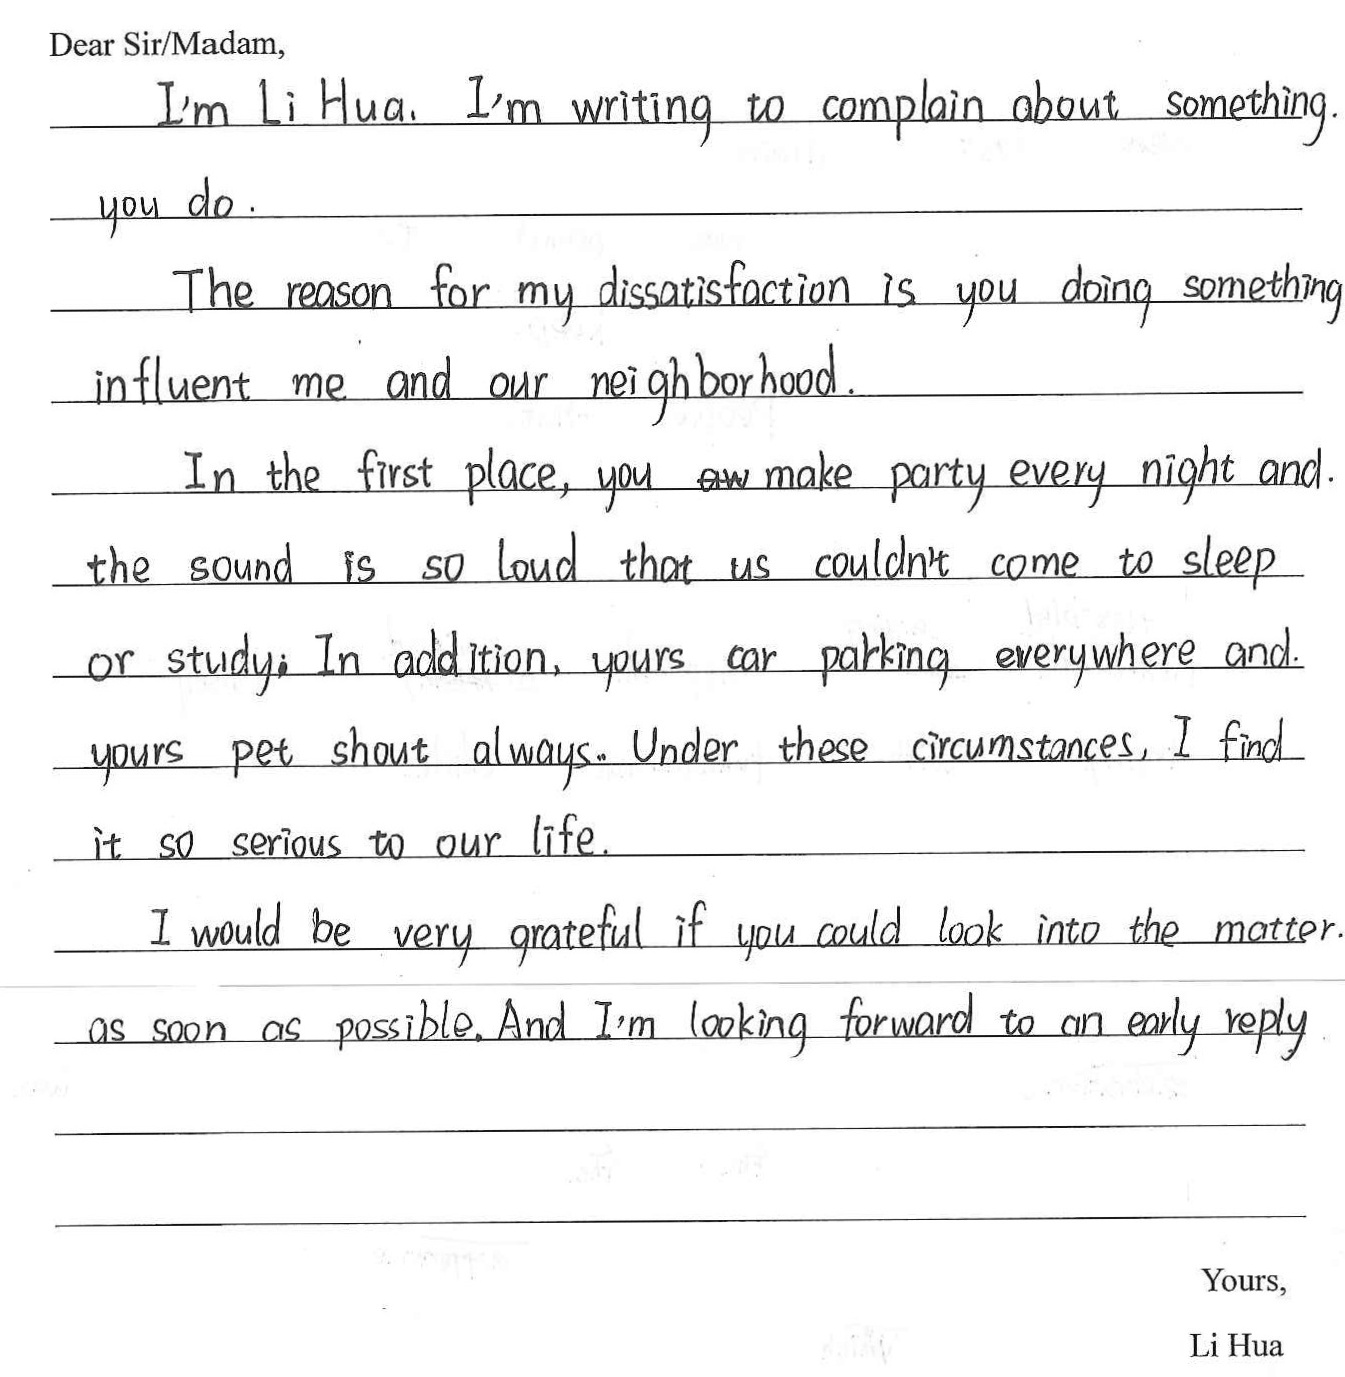 Dear Sir/Madam,
I'm Li Hua. I'm writing to complain about something.
you do.
The reason for my dissatisfaction is you doing something
influent me and our neighborhood.
In the first place, you make party every night and.
the sound is so loud that us couldn't come to sleep
or study; In addition, yours car parking everywhere and.
yours pet shout always. Under these circumstances, I find
it so serious to our life.
I would be very grateful if you could look into the matter.
as soon as possible. And I'm looking forward to an early reply.
Yours,
Li Hua